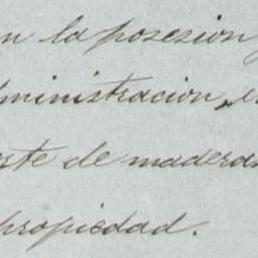 n la posesion y
dministracion, e
rte de madera
propiedad.